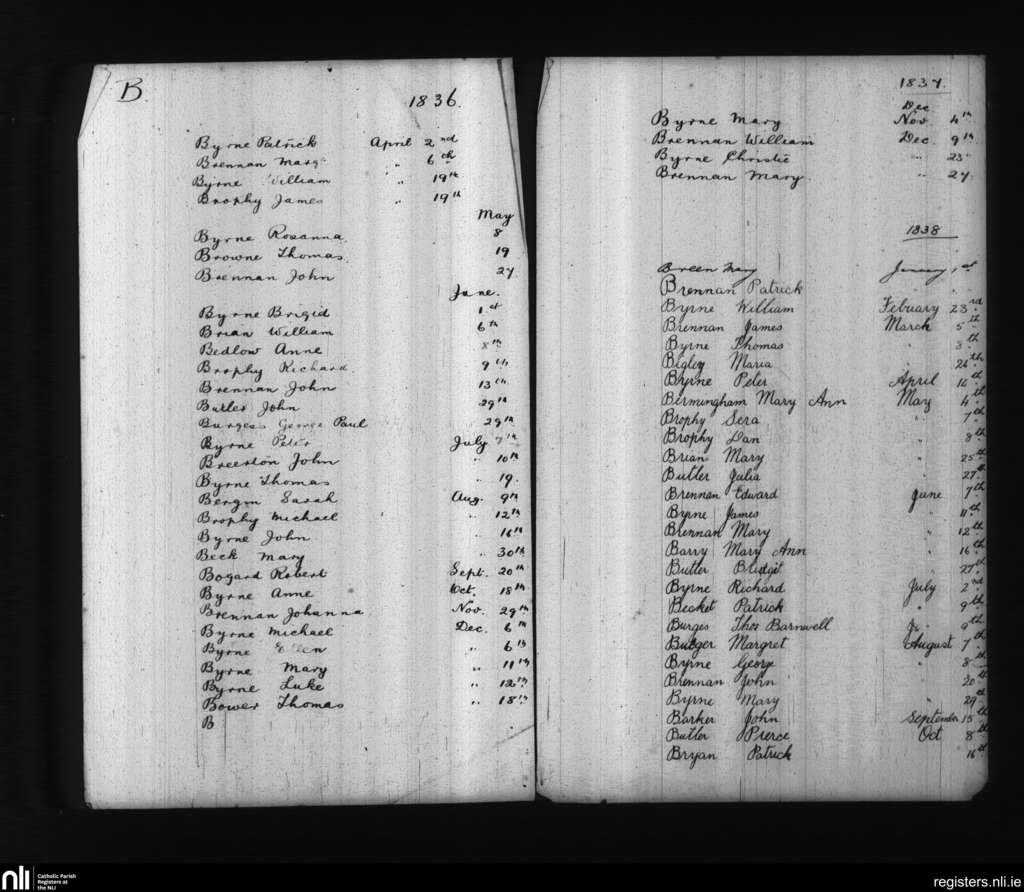 B.
1836.
Byrne Patrick April 2nd
Brennan Marg " 6th
Byrne William " 19th
Brophy James " 19th
May
Byrne Rosanna 8
Browne Thomas 19
Brennan John 27
June.
Byrne Brigid 1st
Brian William 6th
Bedlow Anne 8th
Brophy Richard. 9th
Brennan John 13th
Butler John 29th
Burgess George Paul 29th
Byrne Peter July 7th
Breerton John " 10th
Byrne Thomas " 19.
Bergin Sarah Aug. 9th
Brophy Michael " 12th
Byrne John " 16th
Beck Mary " 30th
Bogard Robert Sept. 20th
Byrne Anne Oct. 18th
Brennan Johanna Nov. 29th
Byrne Michael Dec. 6th
Byrne Ellen " 6th
Byrne Mary " 11th
Byrne Luke " 12th
Bower Thomas " 18th
B
1837.
Dec
Byrne Mary Nov. 4th
Brennan William Dec. 9th
Byrne Christie " 23
Brennan Mary. " 27
1838
Breen Mary January 1st
Brennan Patrick " "
Byrne William Febuary 23rd
Brennan James March 5th
Byrne Thomas " 3th
Bigley Maria " 26th
Byrne Peter April 16th
Bermingham Mary Ann May 4th
Brophy Sera " 7th
Brophy Dan " 8th
Brian Mary " 25th
Butler Julia " 27th
Brennan Edward June 7th
Byrne James " 11th
Brennan Mary " 12th
Barry Mary Ann " 16th
Butler Bridgit " 27th
Byrne Richard July 2nd
Becket Patrick " 9th
Burges Thos Barnwell 9th
Margret August 7th
Byrne George " 8th
Brennan John 20th
Byrne Mary " 29th
Barker John September 15th
Butler Pierce Oct 8th
Bryan Patrick 16th
nli
Catholic Parish
Registers at
the NLI
registers.nli.ie